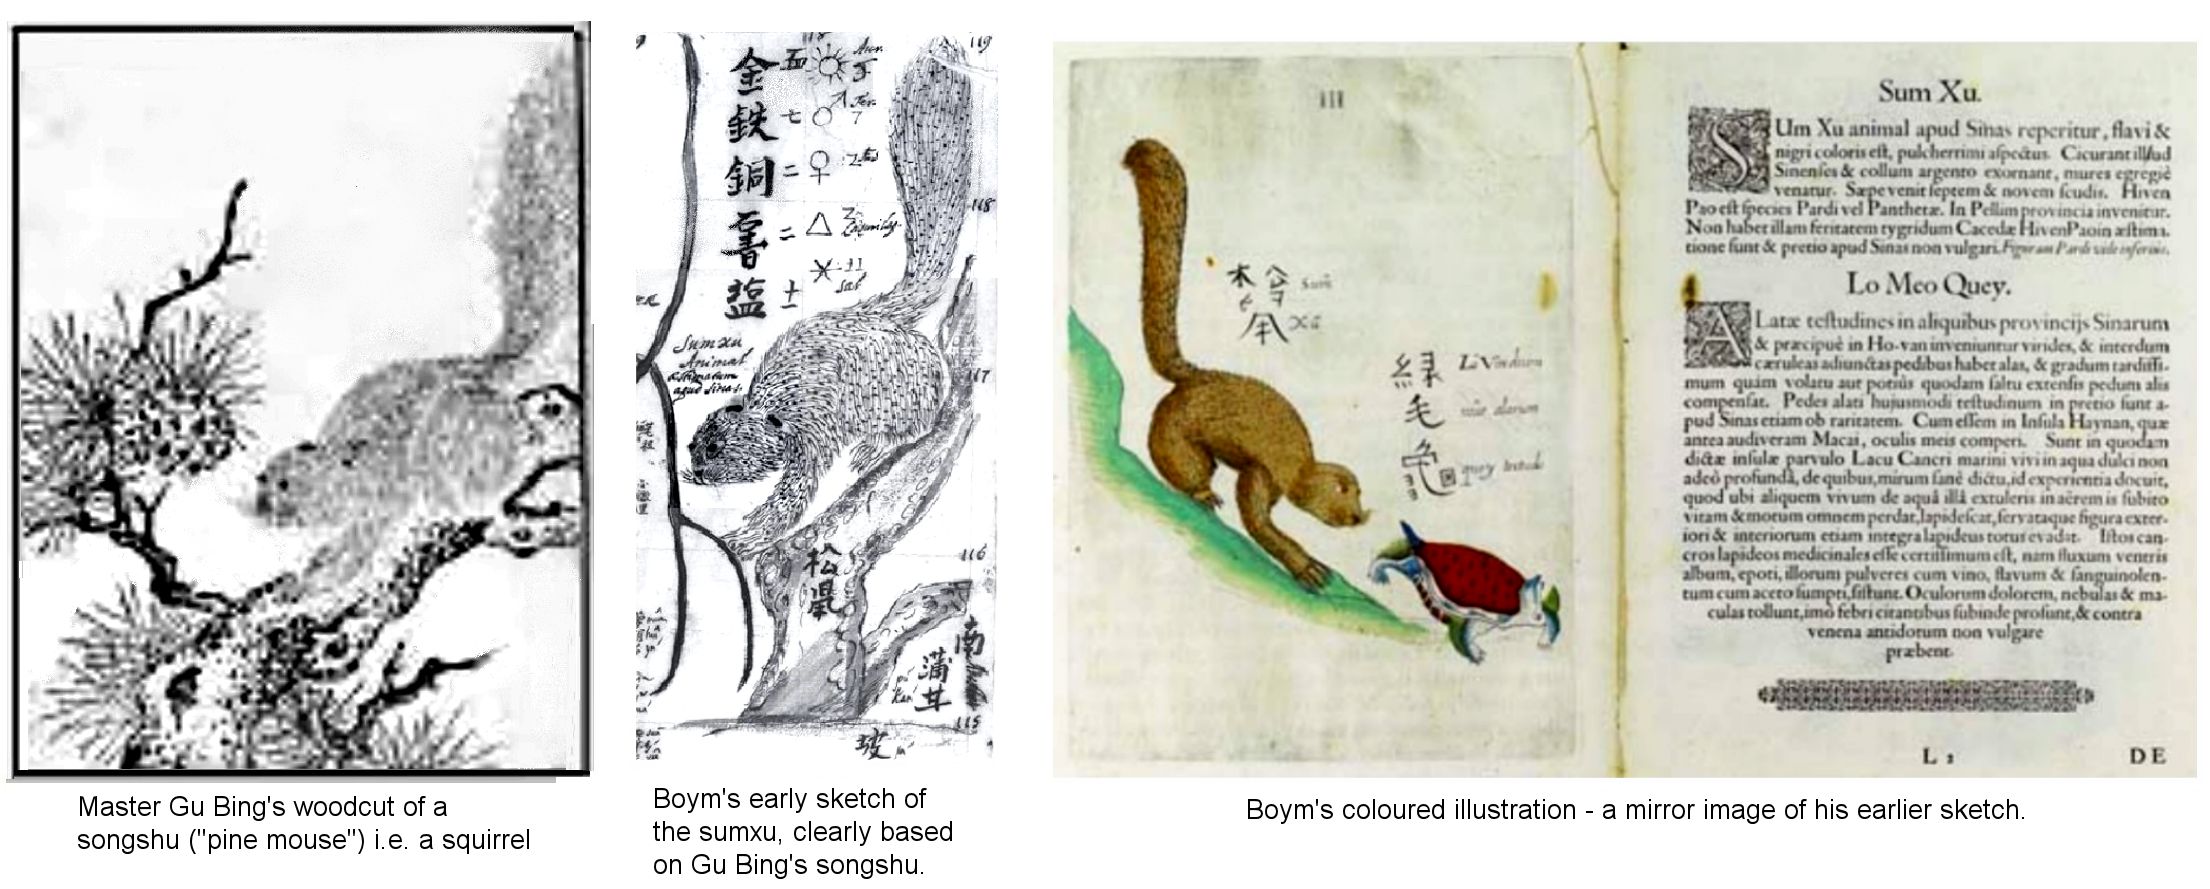 Master Gu Bing's woodcut of a
songshu ("pine mouse") i.e. a squirrel
119
金 五
鉄 七
銅 二
二
塩 十一
118
Sumxu
Animal
117
116
松鼠
南
蒲
甘
115
坡
Boym's early sketch of
the sumxu, clearly based
on Gu Bing's songshu.
III
Sum
Xu
綠
毛
Sum Xu.
SUm Xu animal apud Sinas reperitur, flavi &
nigri coloris est, pulcherrimi aspectus. Cicurant illud
Sinenses & collum argento exornant, mures egregiè
venatur. Sæpe venit septem & novem scudis. Hiven
Pao est species Pardi vel Pantheræ. In Pekim provincia invenitur.
Non habet illam feritatem tygridum Cæcedæ HivenPao in æstima-
tione sunt & pretio apud Sinas non vulgari. Figuram Pardi vide inferius.
Lo Meo Quey.
ALatæ testudines in aliquibus provincijs Sinarum
& præcipuè in Ho-van inveniuntur virides, & interdum
cæruleas adiunctas pedibus habet alas, & gradum tardissi-
mum quàm volatu aut potiùs quodam saltu extensis pedum alis
compensat. Pedes alati hujusmodi testudinum in pretio sunt a-
pud Sinas etiam ob raritatem. Cum essem in Insula Haynan, quæ
antea audiveram Macai, oculis meis comperi. Sunt in quodam
dictæ insulæ parvulo Lacu Cancri marini vivi in aqua dulci non
adeò profundâ, de quibus, mirum sanè dictu, id experientia docuit,
quod ubi aliquem vivum de aquâ illâ extuleris in aërem is subito
vitam & motum omnem perdat, lapidescat, servataque figura exter-
iori & interiorum etiam integra lapideus totus evadat. Istos can-
cros lapideos medicinales esse certissimum est, nam fluxum ventris
album, epoti, illorum pulveres cum vino, flavum & sanguinolen-
tum cum aceto sumpti, sistunt. Oculorum dolorem, nebulas & ma-
culas tollunt, imò febricitantibus subinde prosunt, & contra
venena antidotum non vulgare
præbent.
L 2 DE
Boym's coloured illustration - a mirror image of his earlier sketch.